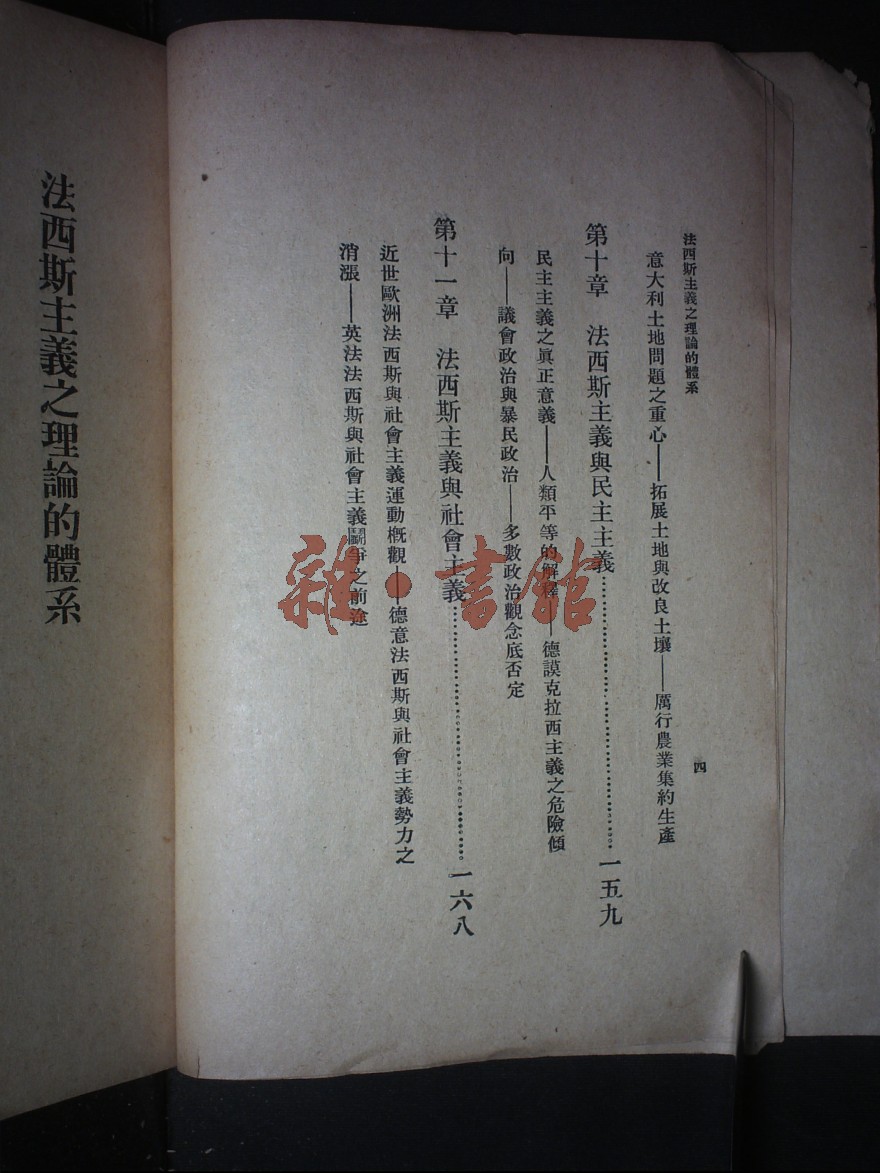 法西斯主義之理論的體系
四
意大利土地問題之重心——拓展土地與改良土壤——厲行農業集約生產
第十章　法西斯主義與民主主義……………………一五九
民主主義之眞正意義——人類平等的解釋——德謨克拉西主義之危險傾
向——議會政治與暴民政治——多數政治觀念底否定
第十一章　法西斯主義與社會主義……………………一六八
近世歐洲法西斯與社會主義運動槪觀——德意法西斯與社會主義勢力之
消漲——英法法西斯與社會主義鬭爭之前途
法西斯主義之理論的體系
雜·書館